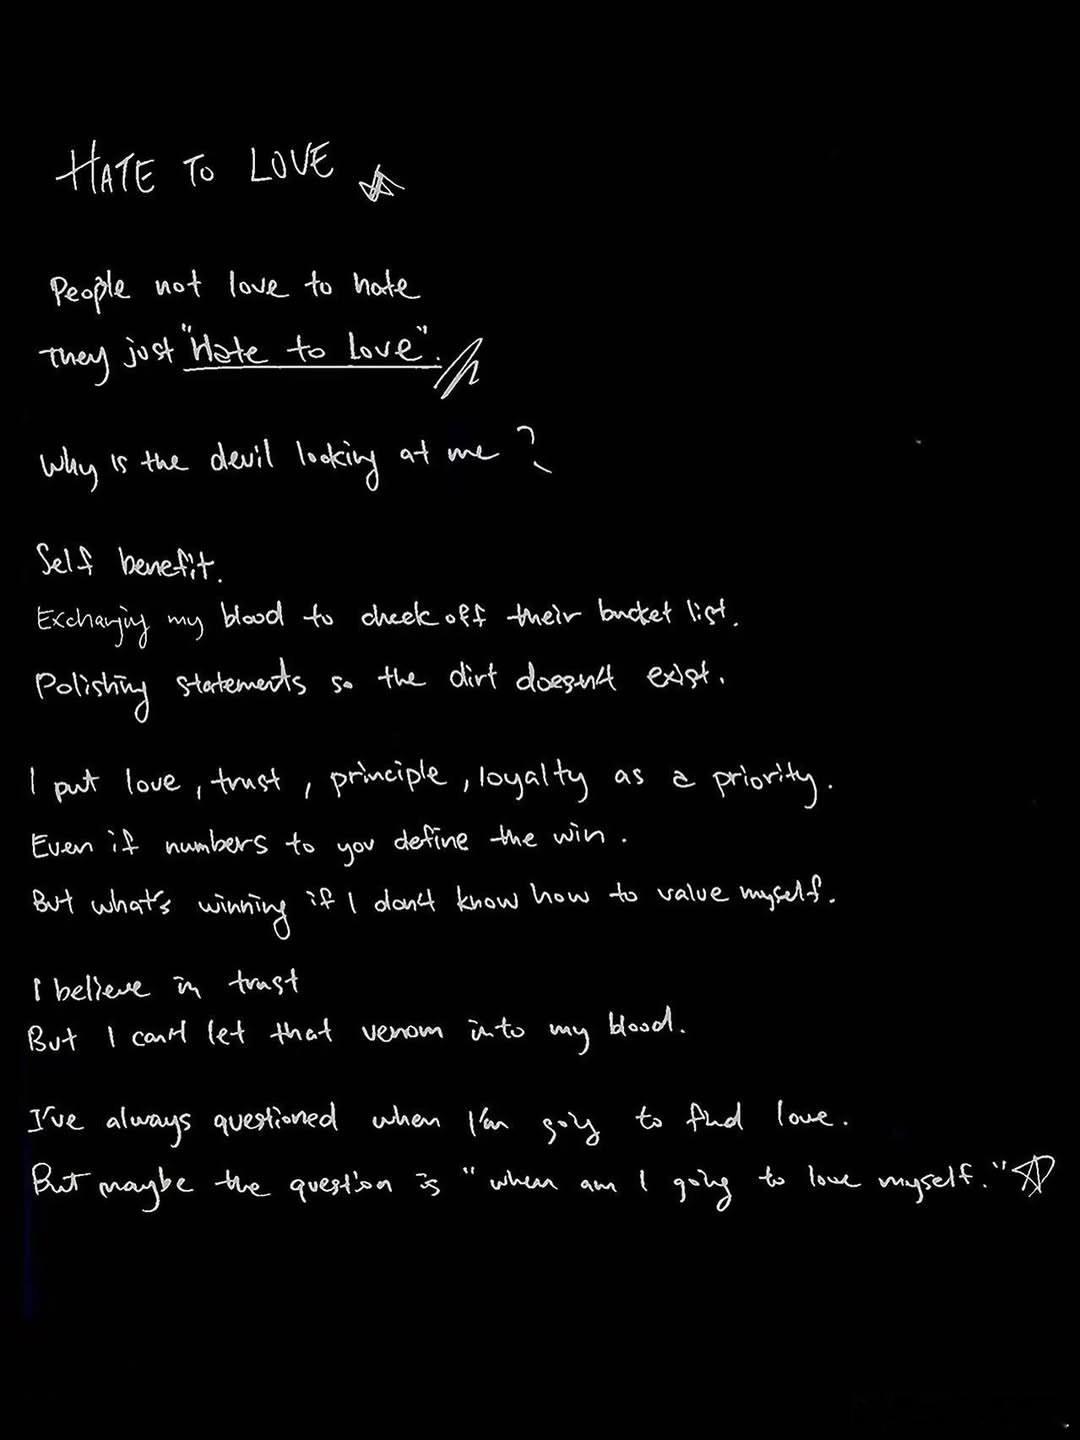 HATE TO LOVE
People not love to hate
They just "Hate to Love".
Why is the devil looking at me?
Self benefit.
Exchanging my blood to check off their bucket list.
Polishing statements so the dirt doesn't exist.
I put love, trust, principle, loyalty as a priority.
Even if numbers to you define the win.
But what's winning if I don't know how to value myself.
I believe in trust
But I can't let that venom into my blood.
I've always questioned when I'm going to find love.
But maybe the question is "when am I going to love myself."